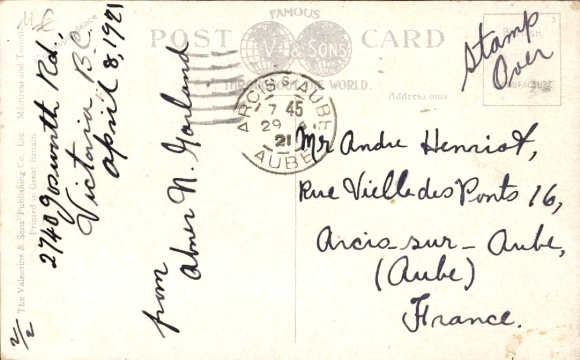 FAMOUS
POST CARD
V & SONS
THROUGHOUT THE WORLD.
Address only
British
MANUFACTURE
Stamp
Over
ARCIS-S-AUBE
7 45
29
21
AUBE
Mr Andre Henriot,
Rue Vielle des Ponts 16,
Arcis-sur-Aube,
(Aube)
France.
2740, Gosworth Rd.,
Victoria B.C.
April 8, 1921
from
Abner N. Gorland
The Valentine & Sons' Publishing Co., Ltd. Montreal and Toronto
Printed in Great Britain
2/2